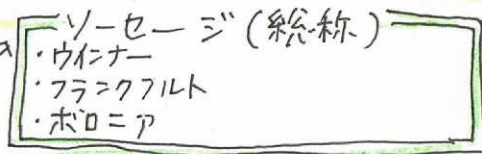 ソーセージ(総称)
・ウインナー
・フランクフルト
・ボロニア